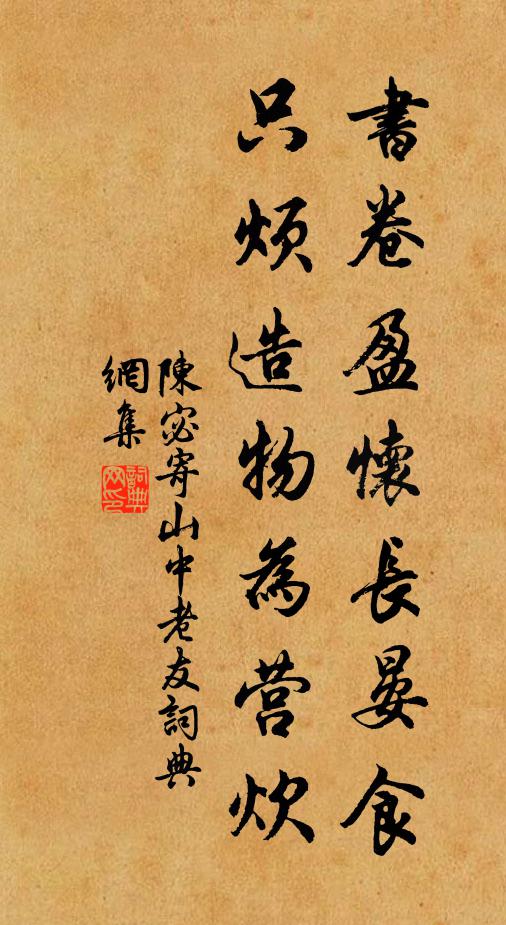 書卷盈懷長晏食
只煩造物為营炊
陳宓寄山中老友詞典
網集
詞典
网印